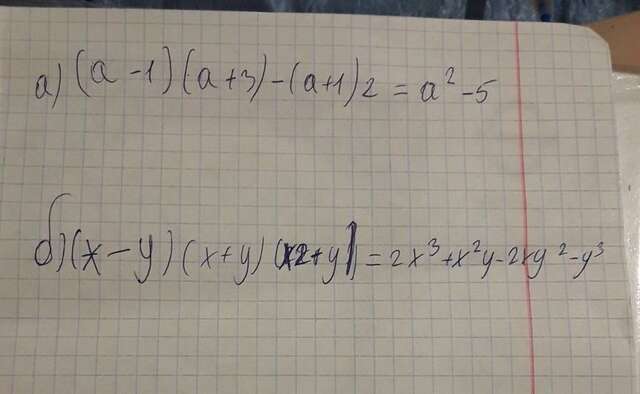 а) (a-1)(a+3)-(a+1)2 = a²-5
б) (x-y)(x+y)(x2+y) = 2x³+x²y-2xy²-y³